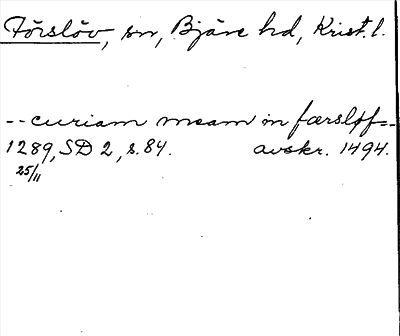 Förslöv, sn, Bjäre hd, Krist. l.
-- curiam meam in færsløf=-
1289, SD 2, s. 84. avskr. 1494.
25/11